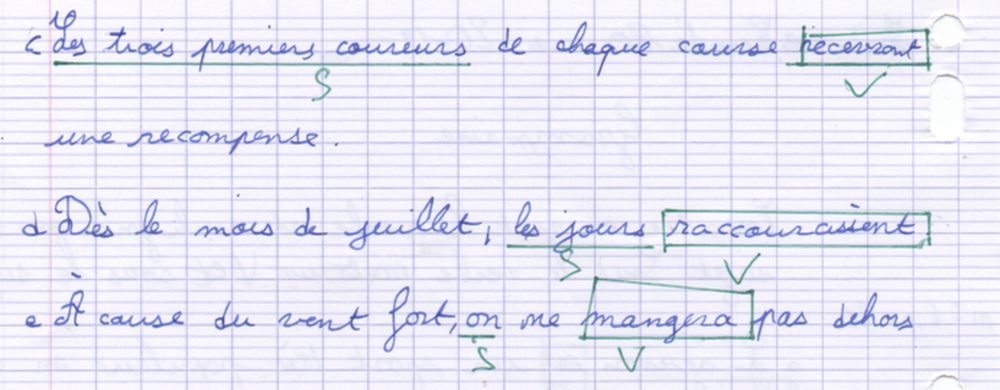 c Les trois premiers coureurs de chaque course recevront
S V
une recompense.
d Dès le mois de juillet, les jours raccourcissent
S V
e À cause du vent fort, on ne mangera pas dehors
S V